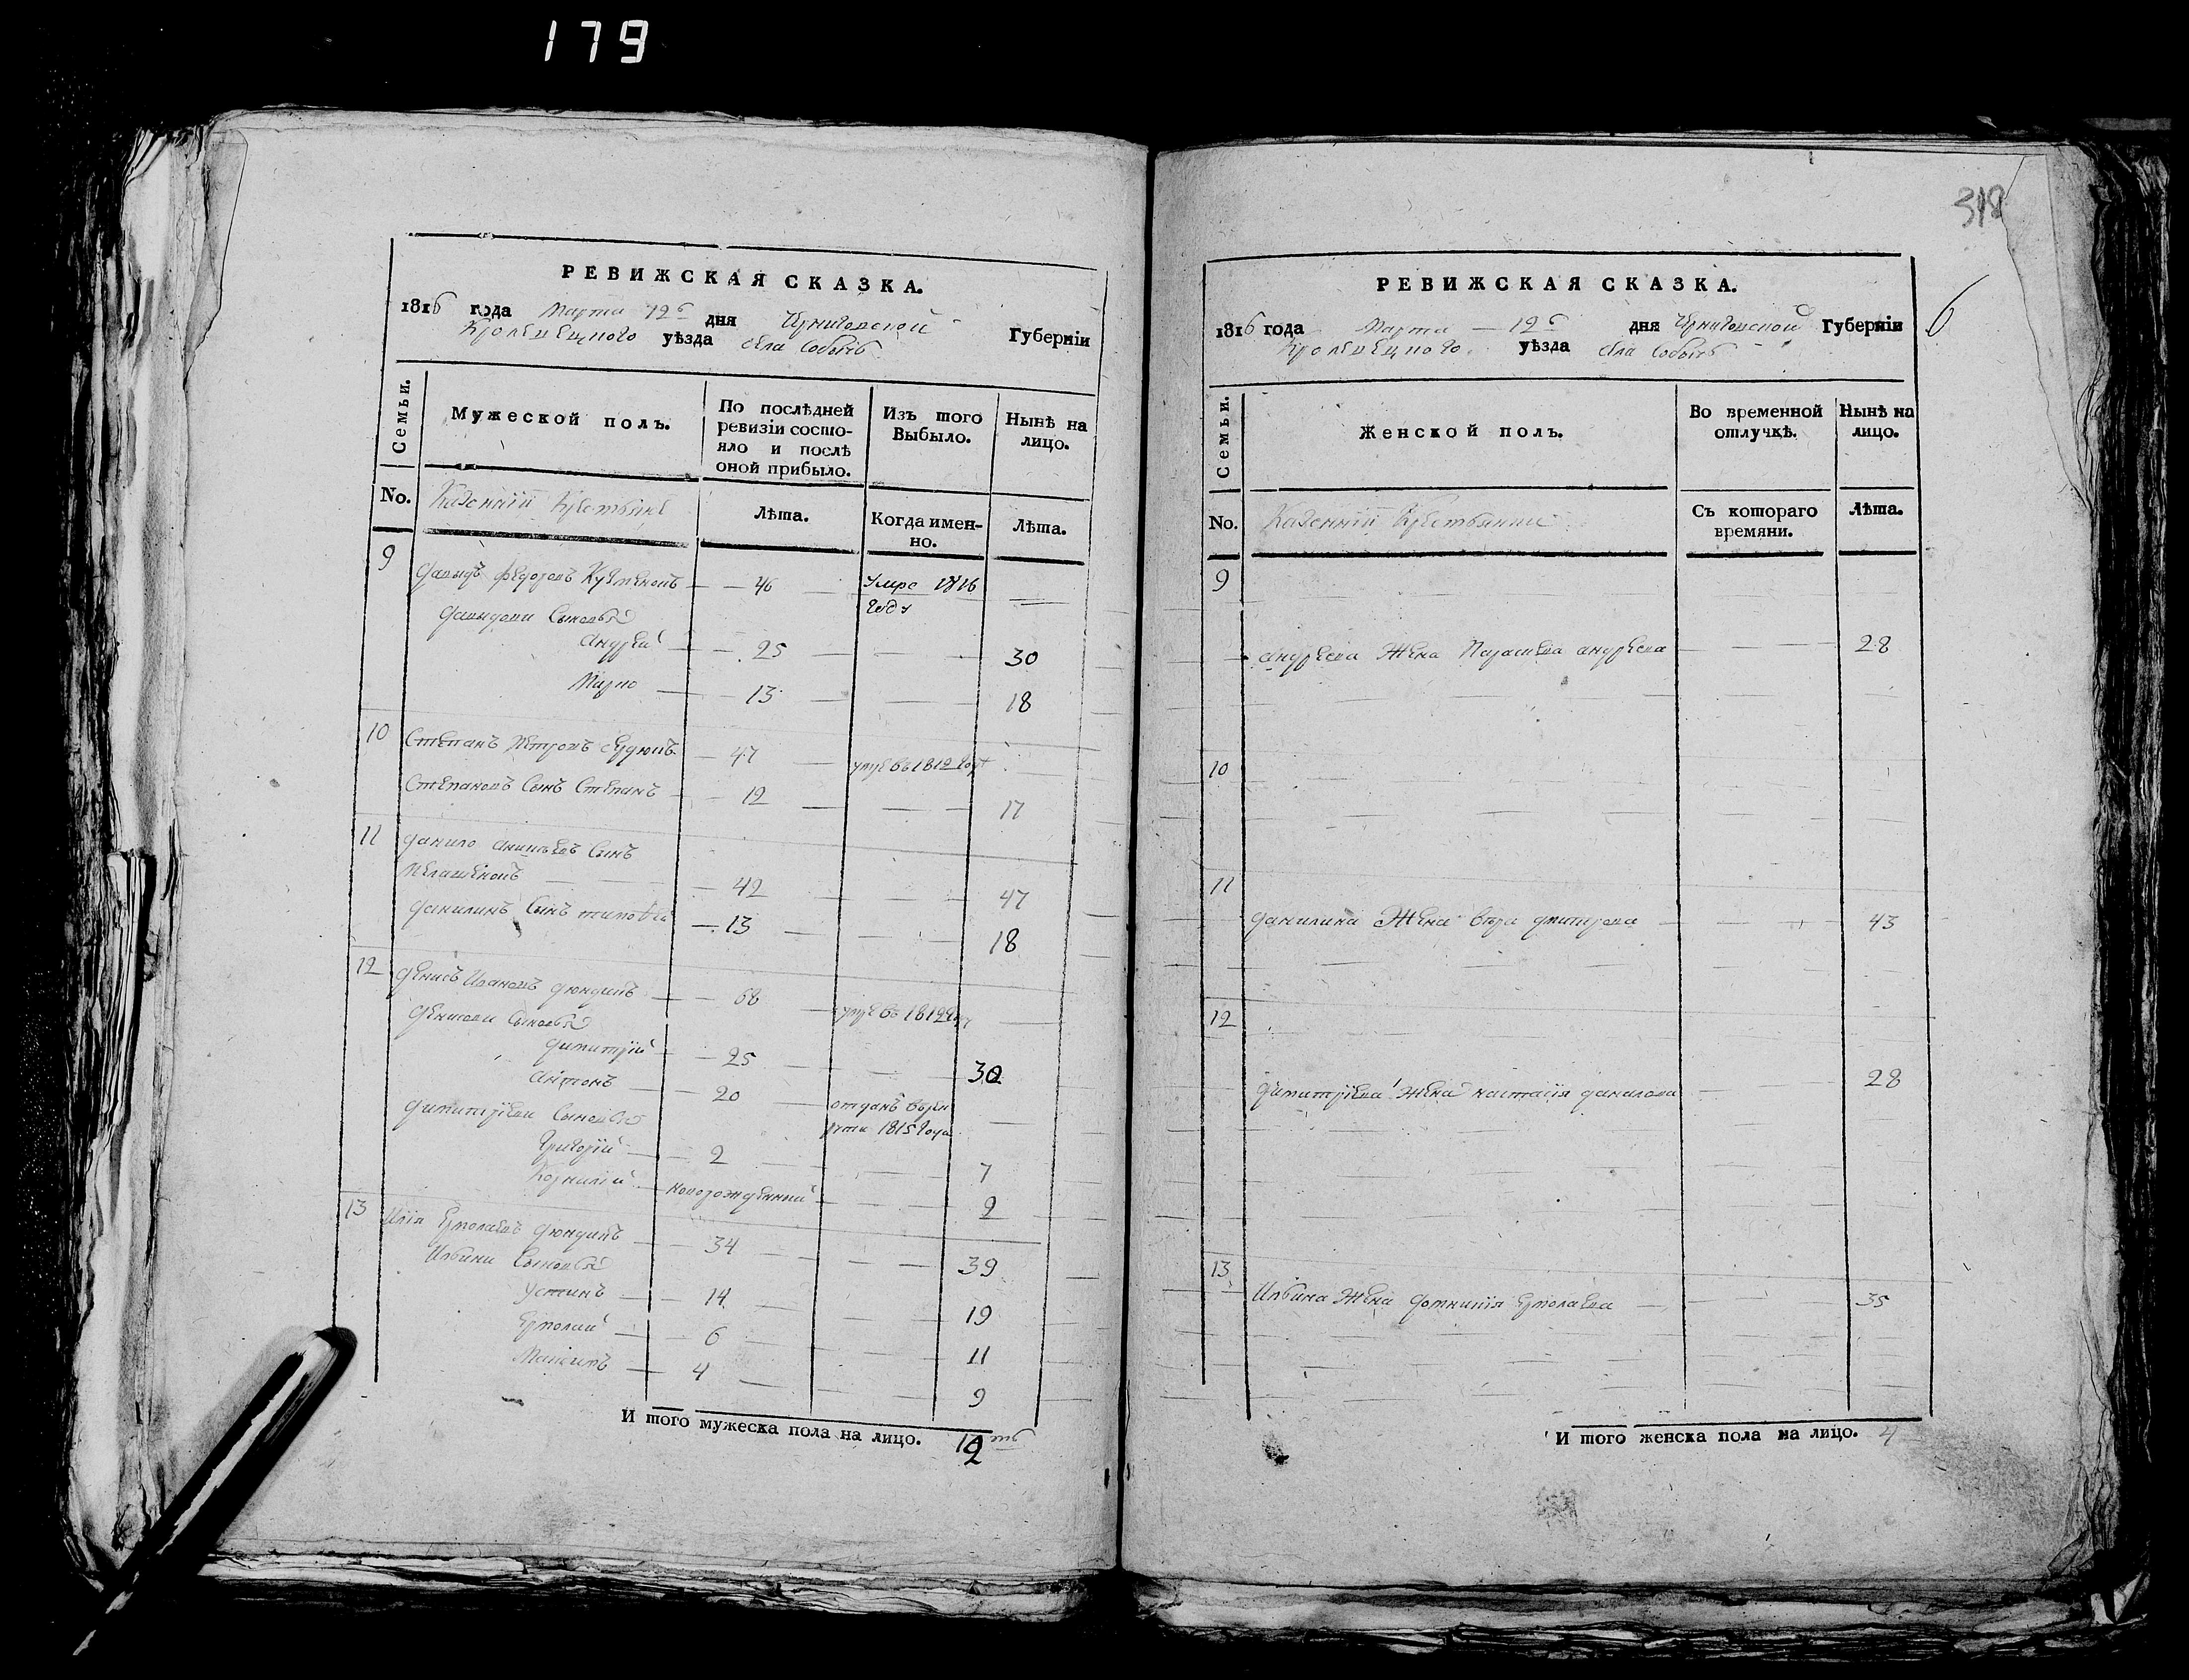 179
РЕВИЖСКАЯ СКАЗКА.
1816 года Марта 12 дня Черниговской Губерніи
Кролевецкого уѣзда села Собычь
Семьи.
Мужеской полъ.
По послѣдней ревизіи состояло и послѣ оной прибыло.
Изъ того Выбыло.
Нынѣ на лицо.
No.
Казенніи Крестьяне
Лѣта.
Когда именно.
Лѣта.
9
Давыдъ Федоровъ 46 Умре 1816 году
Давыдови Сыновья
Андрей 25 30
Марко 13 18
10 Степанъ Петровъ 47 умре въ 1812 году
Степановъ Сынъ Степанъ 12 17
11 Данило Сынъ
42 47
Данилинъ Сынъ Тимофей 13 18
12 Денисъ Ивановъ 68 умре въ 1812 году
Денисови Сыновья
Димитрій 25 30
Антонъ 20 отданъ врекруты 1815 года
Димитріеви Сыновья
Григорій 2 7
Корнилій новорожденный 2
13 Илія Ермолаевъ 34 39
Ильини Сыновья
Устинъ 14 19
Ермолай 6 11
Максимъ 4 9
И того мужеска пола на лицо. 12
318
6
РЕВИЖСКАЯ СКАЗКА.
1816 года Марта 12 дня Черниговской Губерніи
Кролевецкого уѣзда села Собычь
Семьи.
Женской полъ.
Во временной отлучкѣ.
Нынѣ на лицо.
No.
Казенніи Крестьянки
Съ котораго времяни.
Лѣта.
9
Андреева Жена Параскева Андреева 28
10
11
Данилина Жена Вера Дмитрова 43
12
Димитріева Жена Настасія Данилова 28
13
Ильина Жена Домникія Ермолаева 35
И того женска пола на лицо. 4